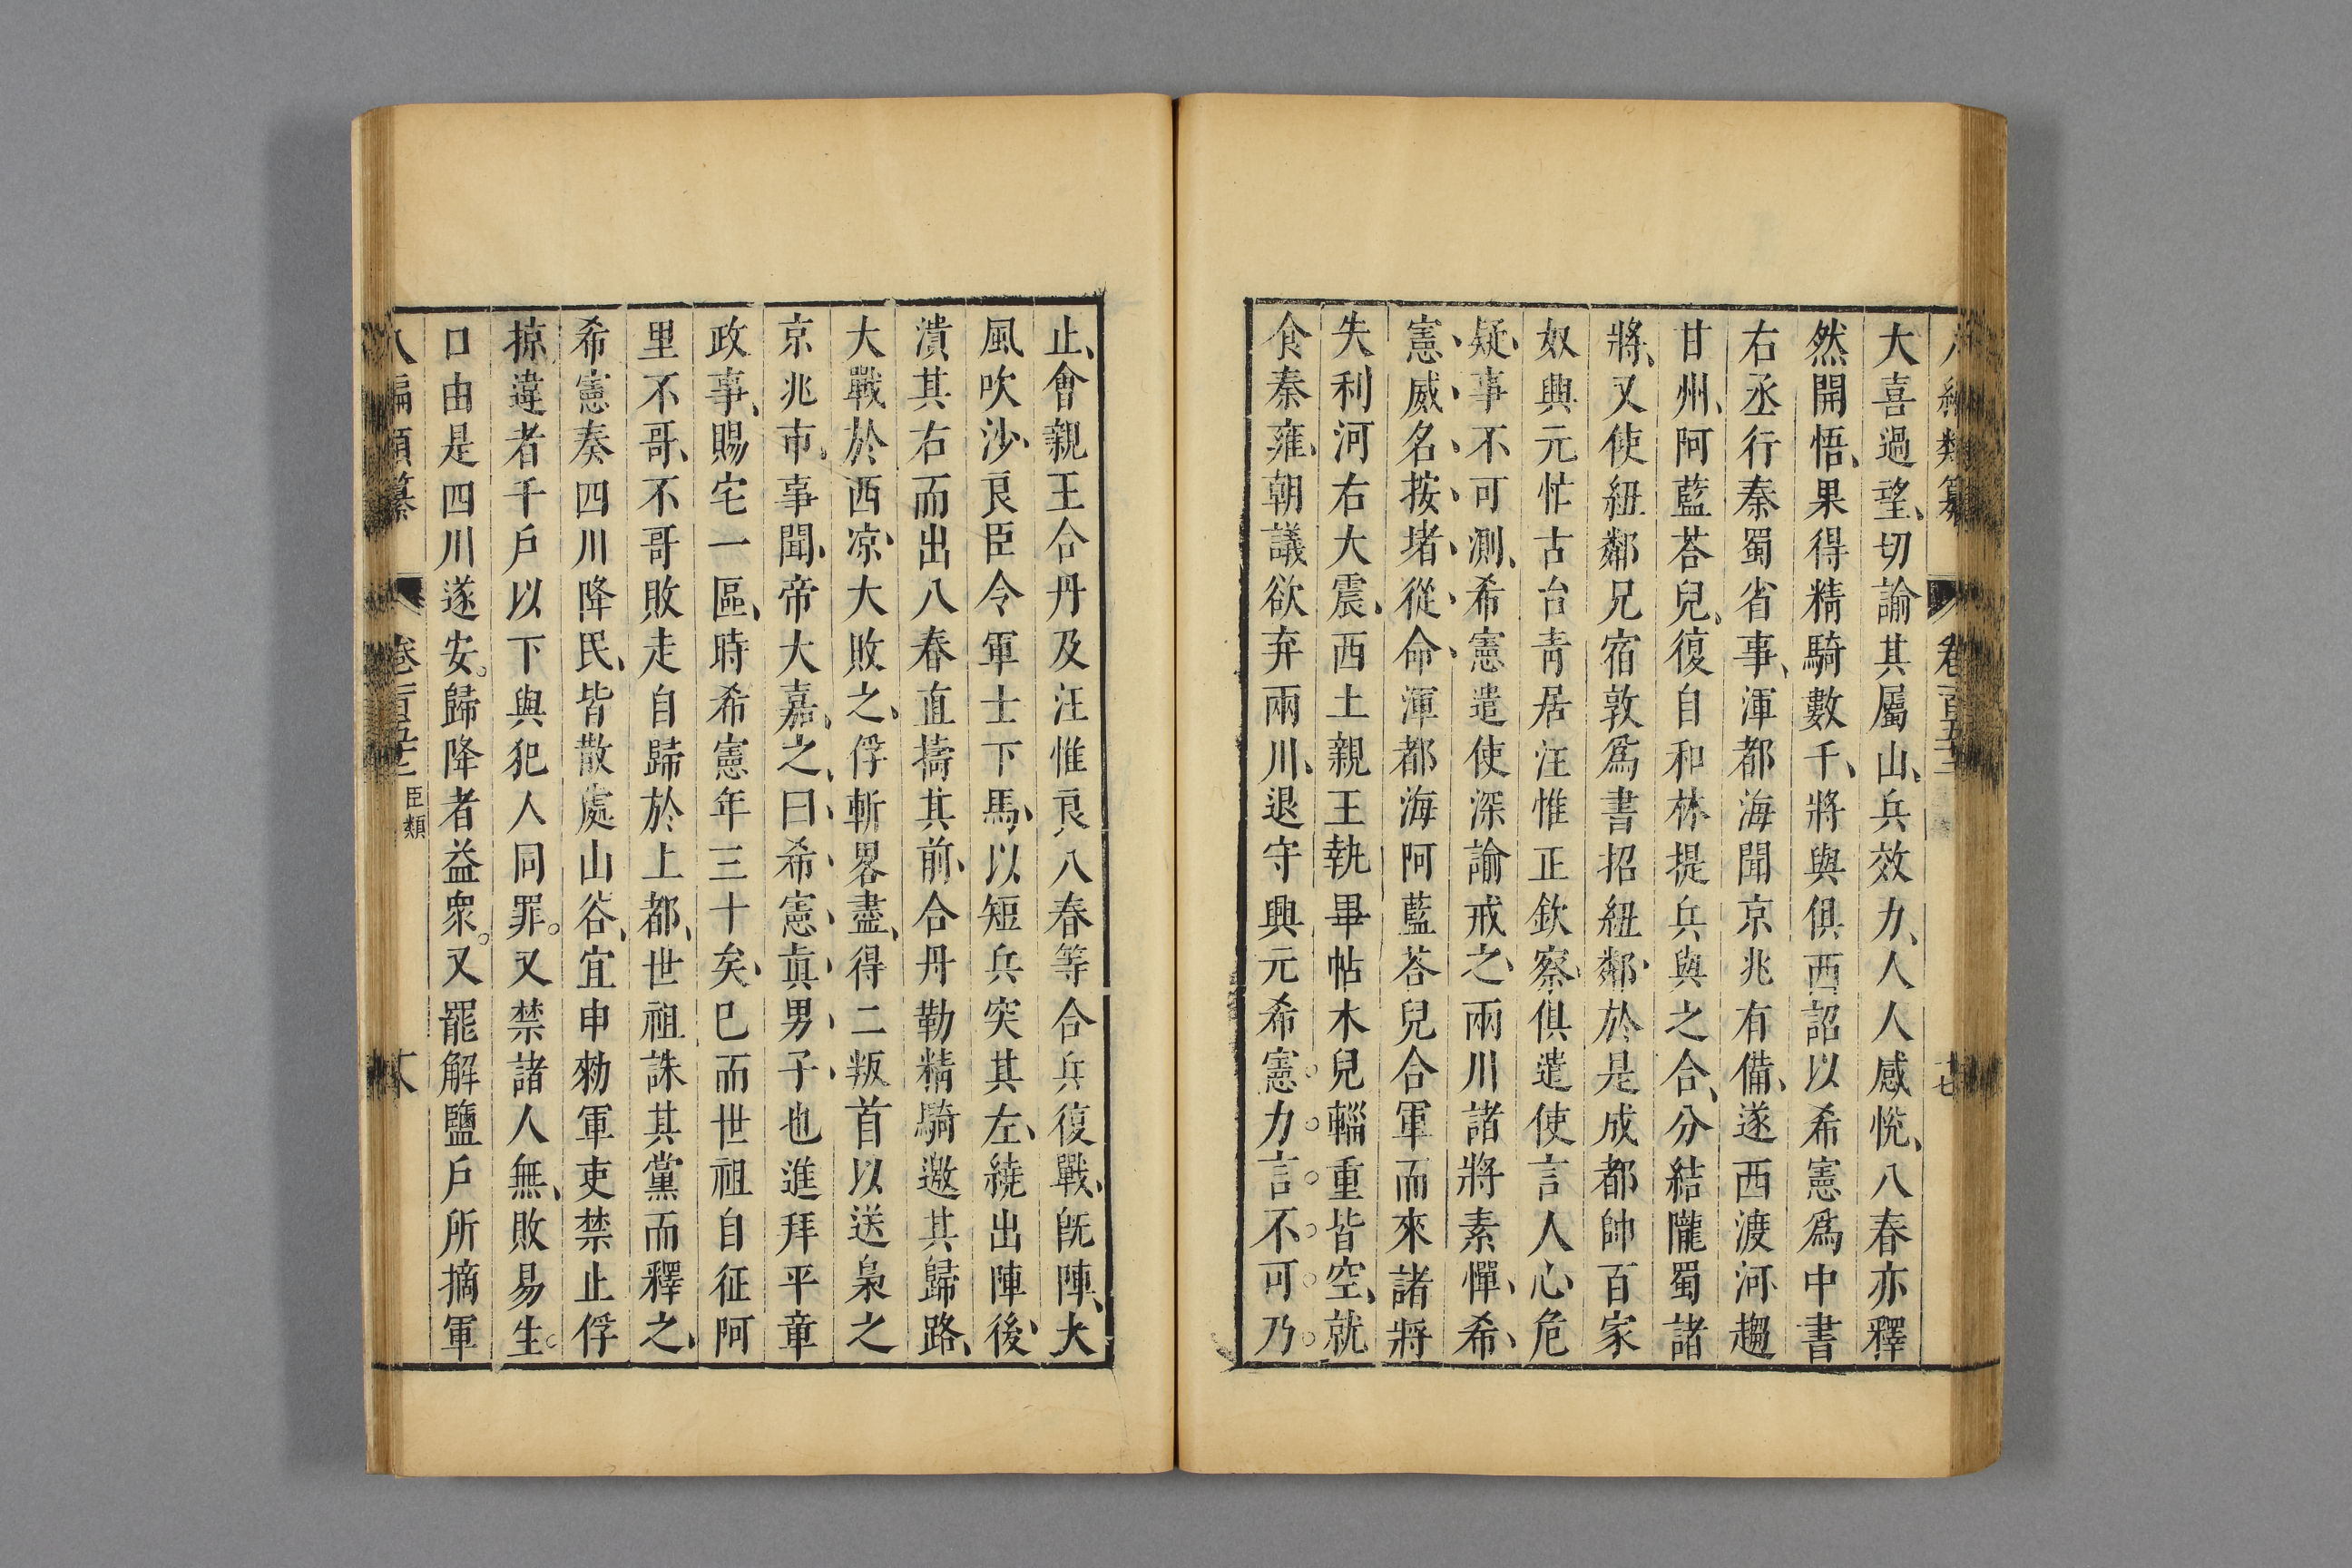 八編類纂 卷百五十三 十七
大喜過望切諭其屬山兵效力人人感悅八春亦釋
然開悟果得精騎數千將與俱西詔以希憲爲中書
右丞行秦蜀省事渾都海聞京兆有備遂西渡河趨
甘州阿藍荅兒復自和林提兵與之合分結隴蜀諸
將又使紐鄰兄宿敦爲書招紐鄰於是成都帥百家
奴興元忙古台靑居汪惟正欽察俱遣使言人心危
疑事不可測希憲遣使深諭戒之兩川諸將素憚希
憲威名按堵從命渾都海阿藍荅兒合軍而來諸將
失利河右大震西土親王執畢帖木兒輜重皆空就
食秦雍朝議欲弃兩川退守興元希憲力言不可乃
止會親王合丹及汪惟良八春等合兵復戰旣陣大
風吹沙良臣令軍士下馬以短兵突其左繞出陣後
潰其右而出八春直擣其前合丹勒精騎邀其歸路
大戰於西凉大敗之俘斬畧盡得二叛首以送梟之
京兆市事聞帝大嘉之曰希憲眞男子也進拜平章
政事賜宅一區時希憲年三十矣已而世祖自征阿
里不哥不哥敗走自歸於上都世祖誅其黨而釋之
希憲奏四川降民皆散處山谷宜申勑軍吏禁止俘
掠違者千戶以下與犯人同罪又禁諸人無敗易生
口由是四川遂安歸降者益衆又罷解鹽戶所摘軍
八編類纂 卷一百五十三 臣類